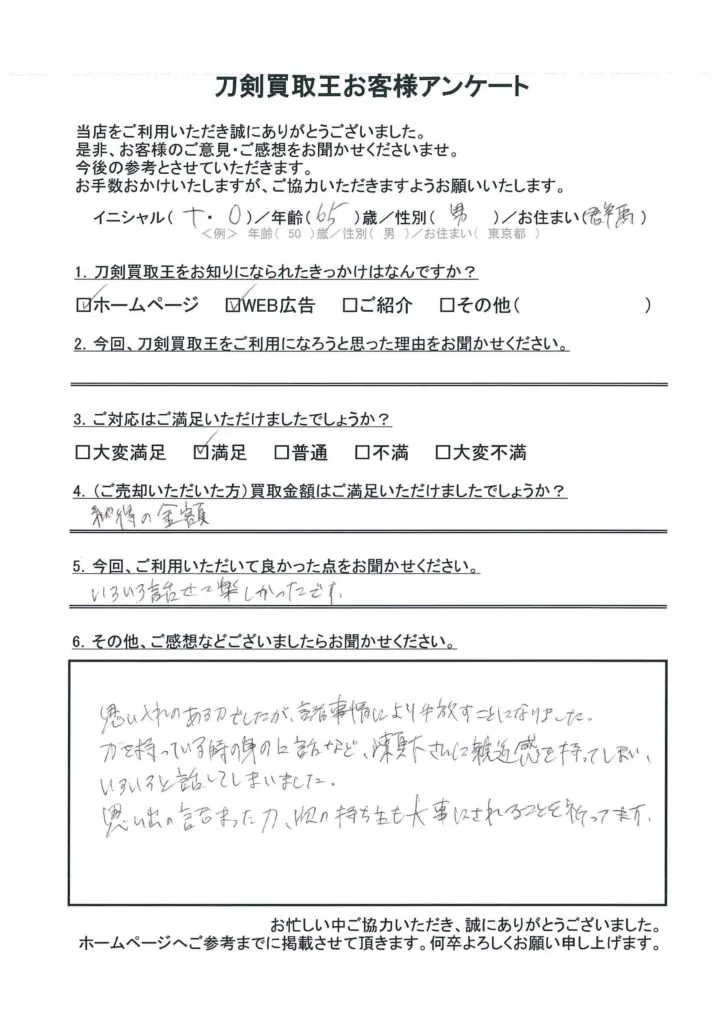 刀剣買取王お客様アンケート
当店をご利用いただき誠にありがとうございました。
是非、お客様のご意見・ご感想をお聞かせくださいませ。
今後の参考とさせていただきます。
お手数おかけいたしますが、ご協力いただきますようお願いいたします。
イニシャル( ・ O )／年齢( 65 )歳／性別( 男 )／お住まい( 群馬 )
＜例＞ 年齢( 50 )歳／性別( 男 )／お住まい( 東京都 )
1. 刀剣買取王をお知りになられたきっかけはなんですか？
☑ホームページ ☑WEB広告 □ご紹介 □その他( )
2. 今回、刀剣買取王をご利用になろうと思った理由をお聞かせください。
3. ご対応はご満足いただけましたでしょうか？
□大変満足 ☑満足 □普通 □不満 □大変不満
4. （ご売却いただいた方）買取金額はご満足いただけましたでしょうか？
納得の金額
5. 今回、ご利用いただいて良かった点をお聞かせください。
いろいろ話せて楽しかったです。
6. その他、ご感想などございましたらお聞かせください。
思い入れのある刀でしたが、諸事情により手放すことになりました。
刀を持っている時の身の上話など、さんに親近感を持ってしまい、
いろいろと話してしまいました。
思い出の詰まった刀、次の持ち主も大事にされることを祈ってます。
お忙しい中ご協力いただき、誠にありがとうございました。
ホームページへご参考までに掲載させて頂きます。何卒よろしくお願い申し上げます。